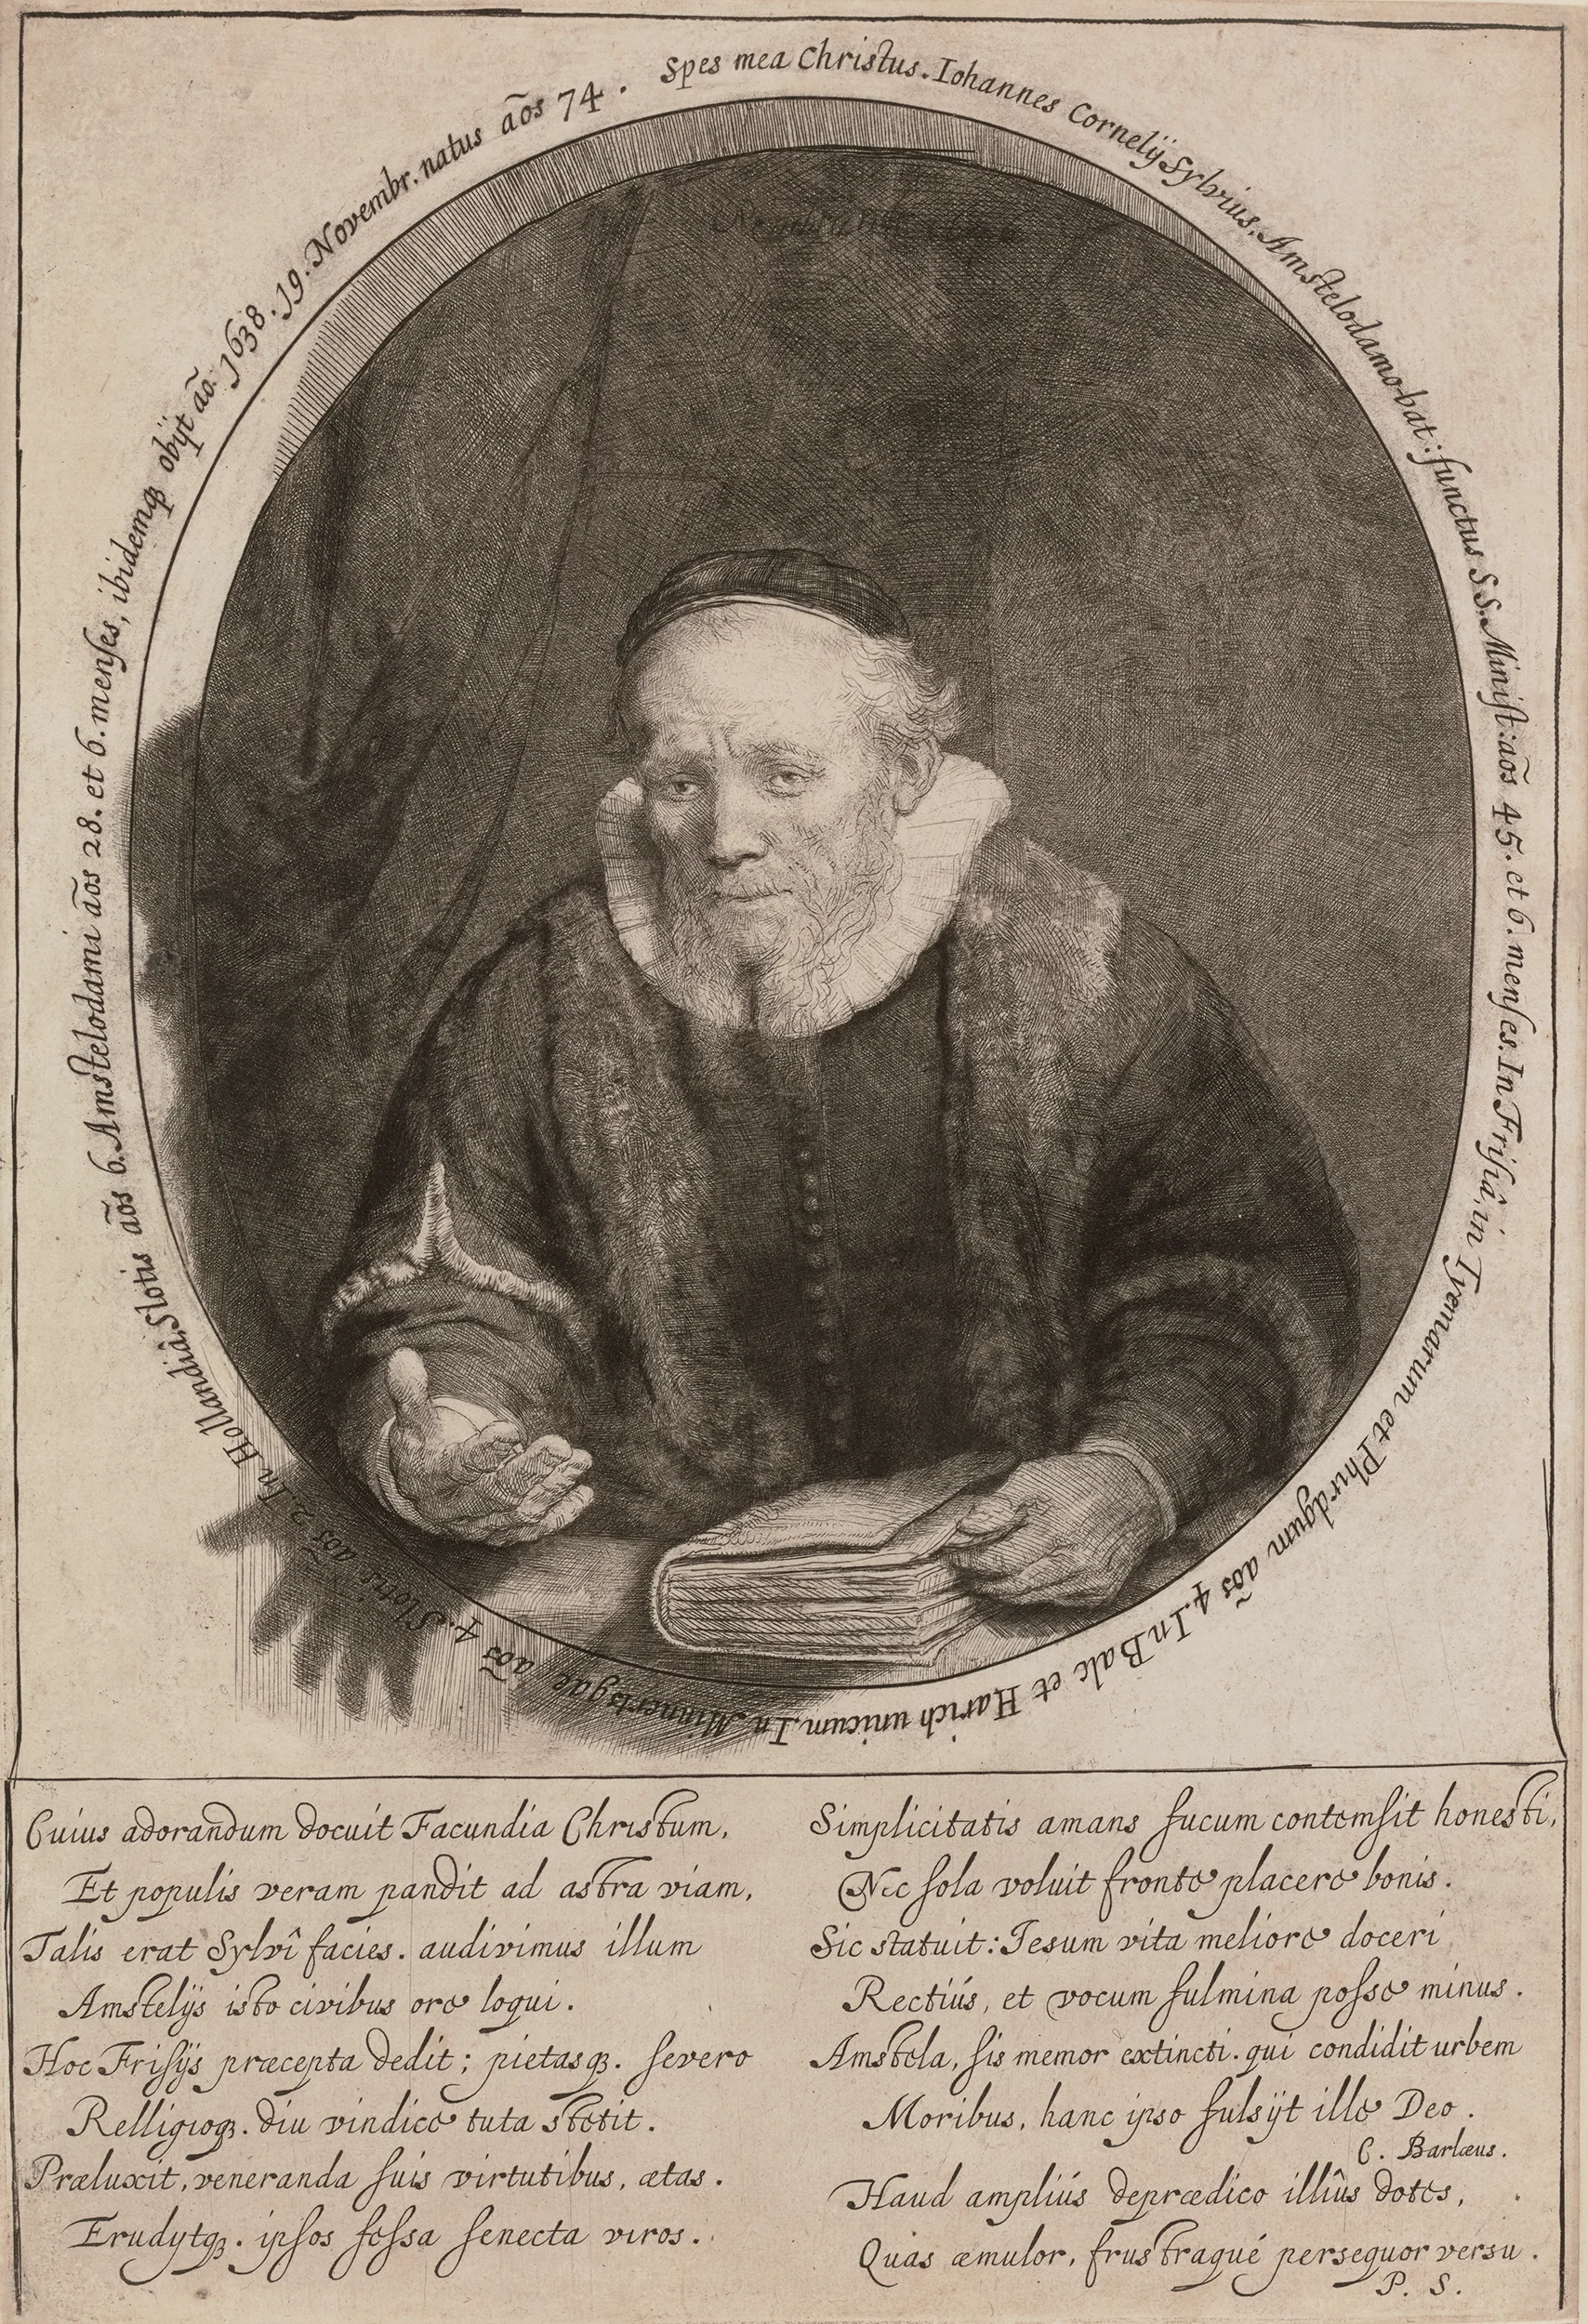 Spes mea Christus. Iohannes Cornelÿ Sylvius, Amstelodamo-bat: functus S.S. Minist: aõs 45. et 6. menses. In Frisiâ, in Tyemarum et Phirdgum aõs 4. In Balc et Harich unicum, In Minnertsgae aõs 4. Slotis aõs 2. In Hollandiâ, Slotis aõs 6. Amstelodami aõs 28. et 6. menses, ibidemqꝫ obÿt aõ. 1638. 19. Novembr. natus aõs 74.
Cuius adorandum docuit Facundia Christum,
Et populis veram pandit ad astra viam,
Talis erat Sylvî facies. audivimus illum
Amstelÿs isto civibus ore loqui.
Hoc Frisÿs præcepta dedit; pietasqꝫ. severo
Relligioqꝫ. diu vindice tuta stetit.
Præluxit, veneranda suis virtutibus, ætas.
Erudytqꝫ. ipsos fessa senecta viros.
Simplicitatis amans fucum contemsit honesti,
Nec sola voluit fronte placere bonis.
Sic statuit: Iesum vita meliore doceri
Rectiús, et vocum fulmina posse minus.
Amstela, sis memor extincti. qui condidit urbem
Moribus, hanc ipso fulsÿt ille Deo.
C. Barlæus.
Haud ampliús deprædico illîus dotes,
Quas æmulor, frustraqué persequor versu.
P. S.